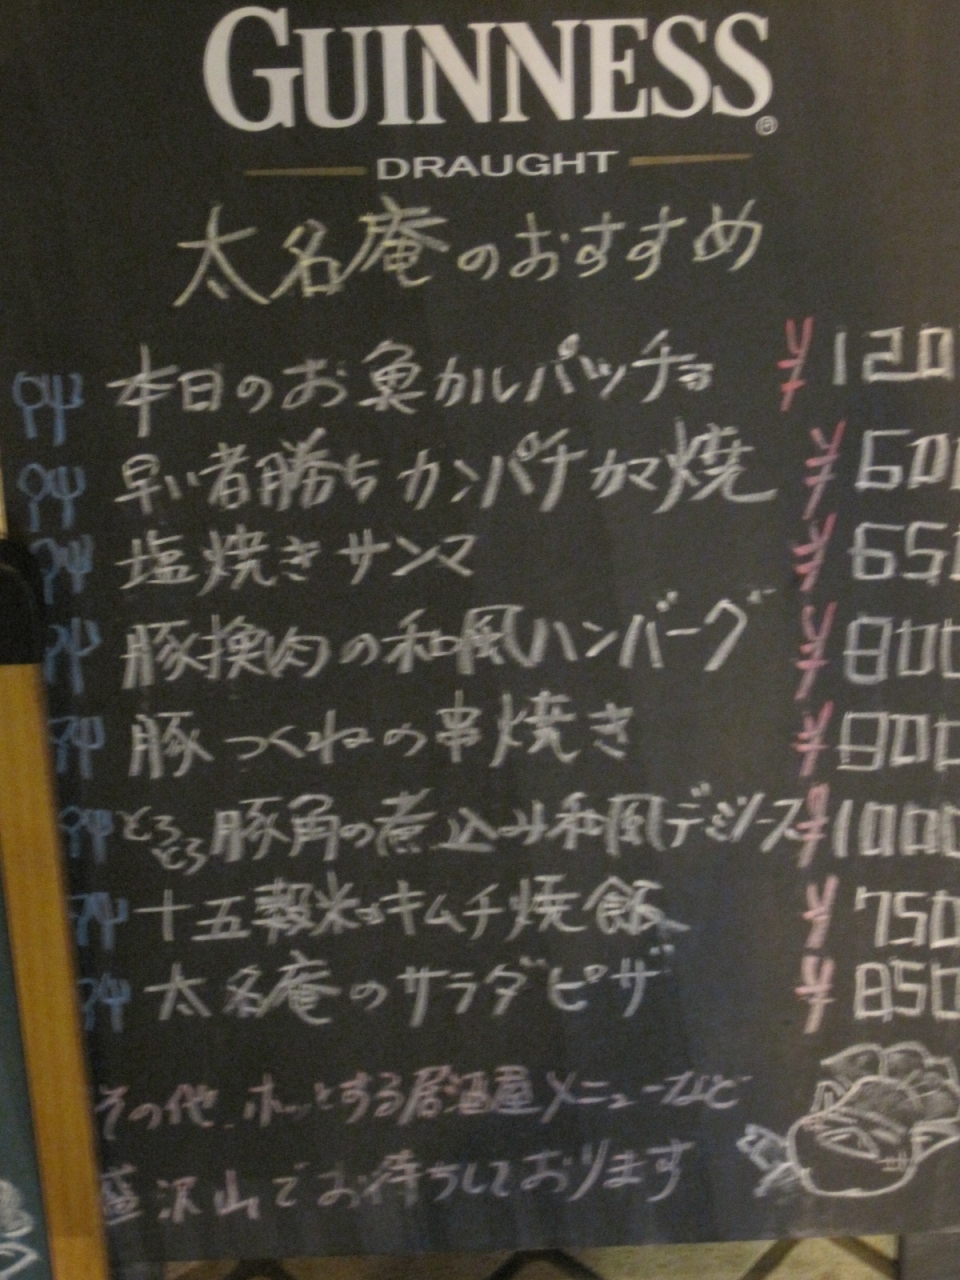 GUINNESS
DRAUGHT
太名庵のおすすめ
本日のお魚カルパッチョ ¥120
早い者勝ちカンパチカマ焼 ¥600
塩焼きサンマ ¥650
豚挽肉の和風ハンバーグ ¥800
豚つくねの串焼き ¥800
とろとろ豚角の煮込み和風デミソース ¥1000
十五穀米のキムチ焼飯 ¥750
太名庵のサラダピザ ¥850
その他、ホッとする居酒屋メニューなど
盛沢山でお待ちしております